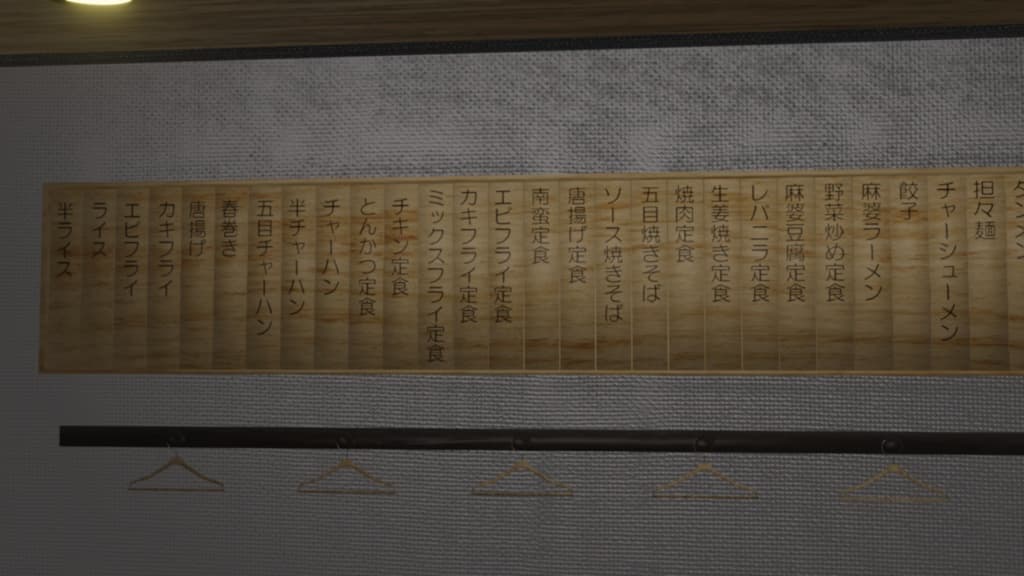 タンメン
担々麺
チャーシューメン
餃子
麻婆ラーメン
野菜炒め定食
麻婆豆腐定食
レバニラ定食
生姜焼き定食
焼肉定食
五目焼きそば
ソース焼きそば
唐揚げ定食
南蛮定食
エビフライ定食
カキフライ定食
ミックスフライ定食
チキン定食
とんかつ定食
チャーハン
半チャーハン
五目チャーハン
春巻き
唐揚げ
カキフライ
エビフライ
ライス
半ライス